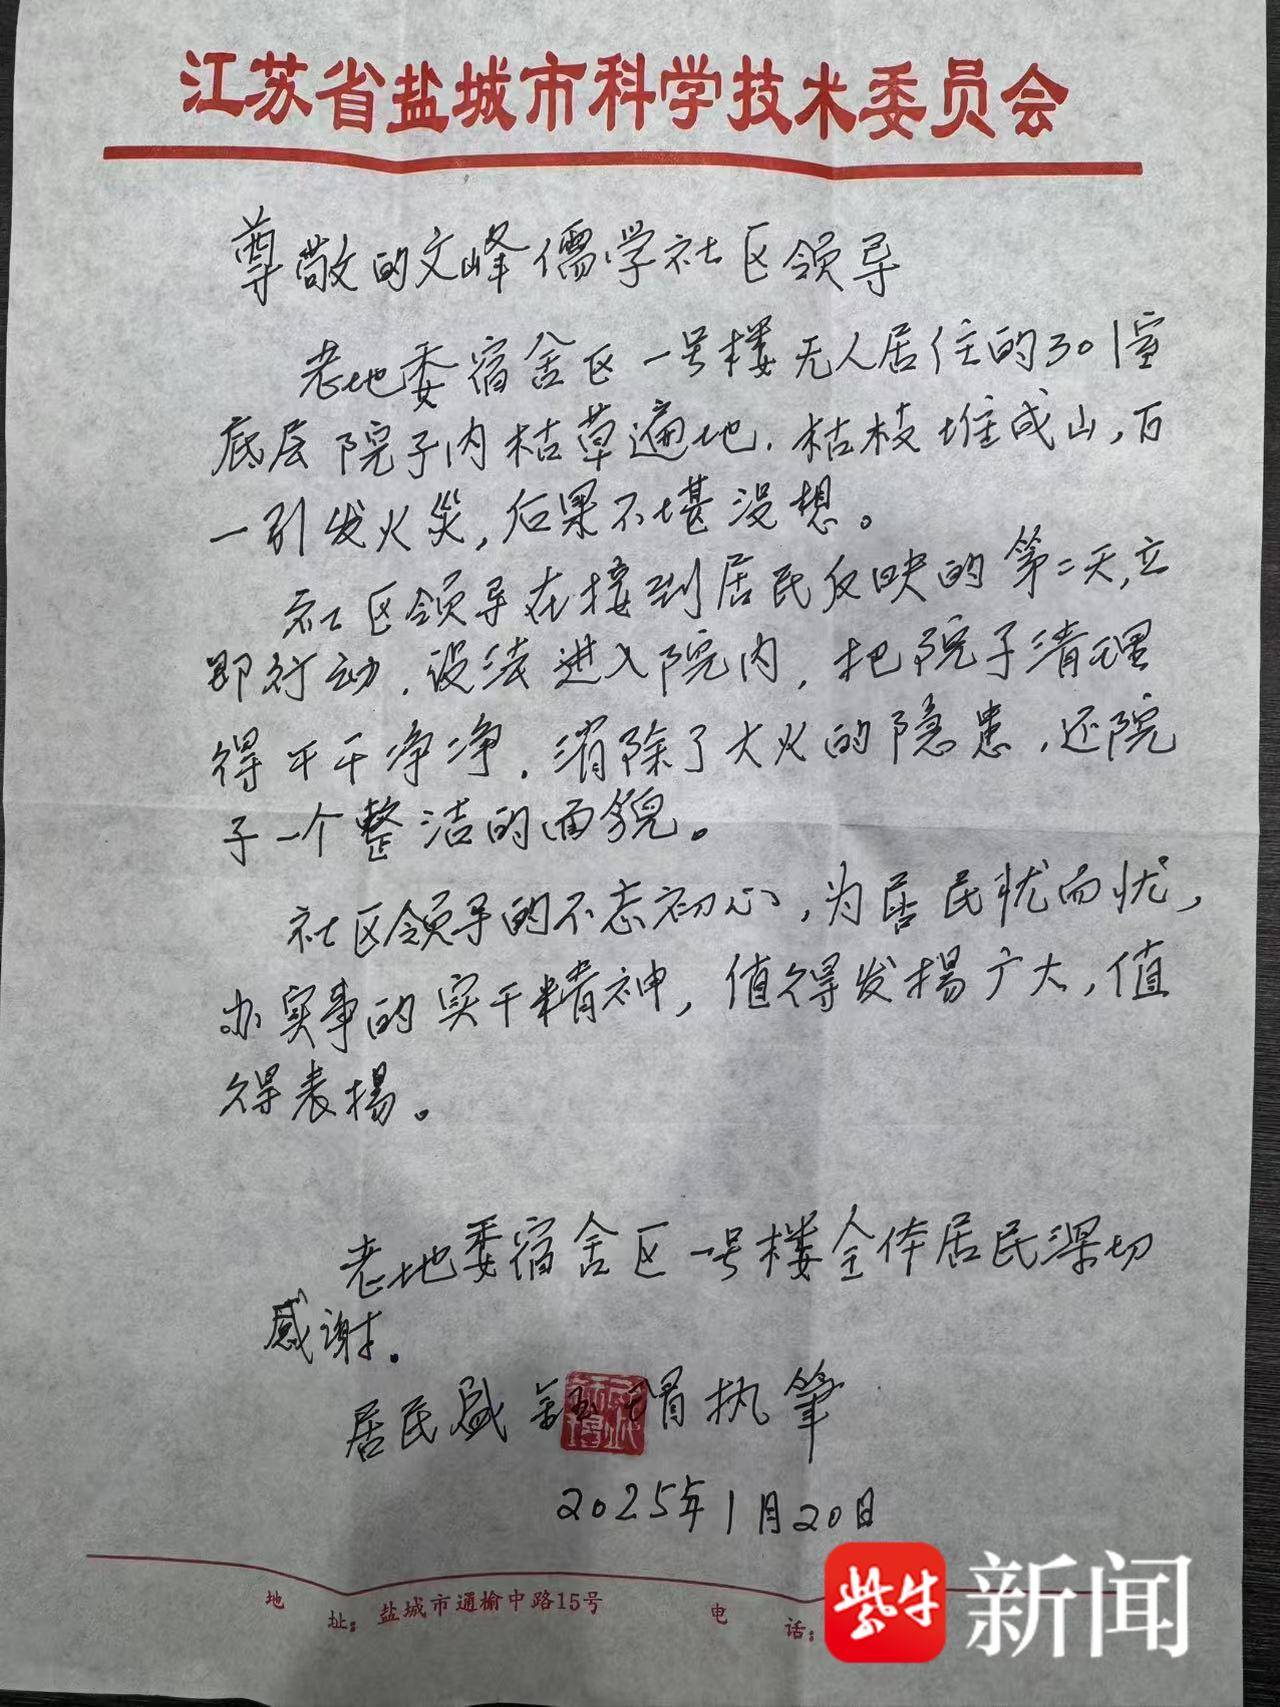 江苏省盐城市科学技术委员会
尊敬的文峰儒学社区领导
老地委宿舍区一号楼无人居住的301室
底层院子内枯草遍地.枯枝堆成山,万
一引发火災,后果不堪没想。
社区领导在接到居民反映的第二天,立
即行动.设法进入院内,把院子清理
得干干净净.消除了大火的隐患.还院
子一个整洁的面貌。
社区领导的不忘初心,为居民忧而忧,
办实事的实干精神,值得发揚广大,值
得表揚。
老地委宿舍区一号楼全体居民深切
感谢.
居民盛 执筆
2025年1月20日
地 址: 盐城市通榆中路15号
电 话:
紫牛
新闻